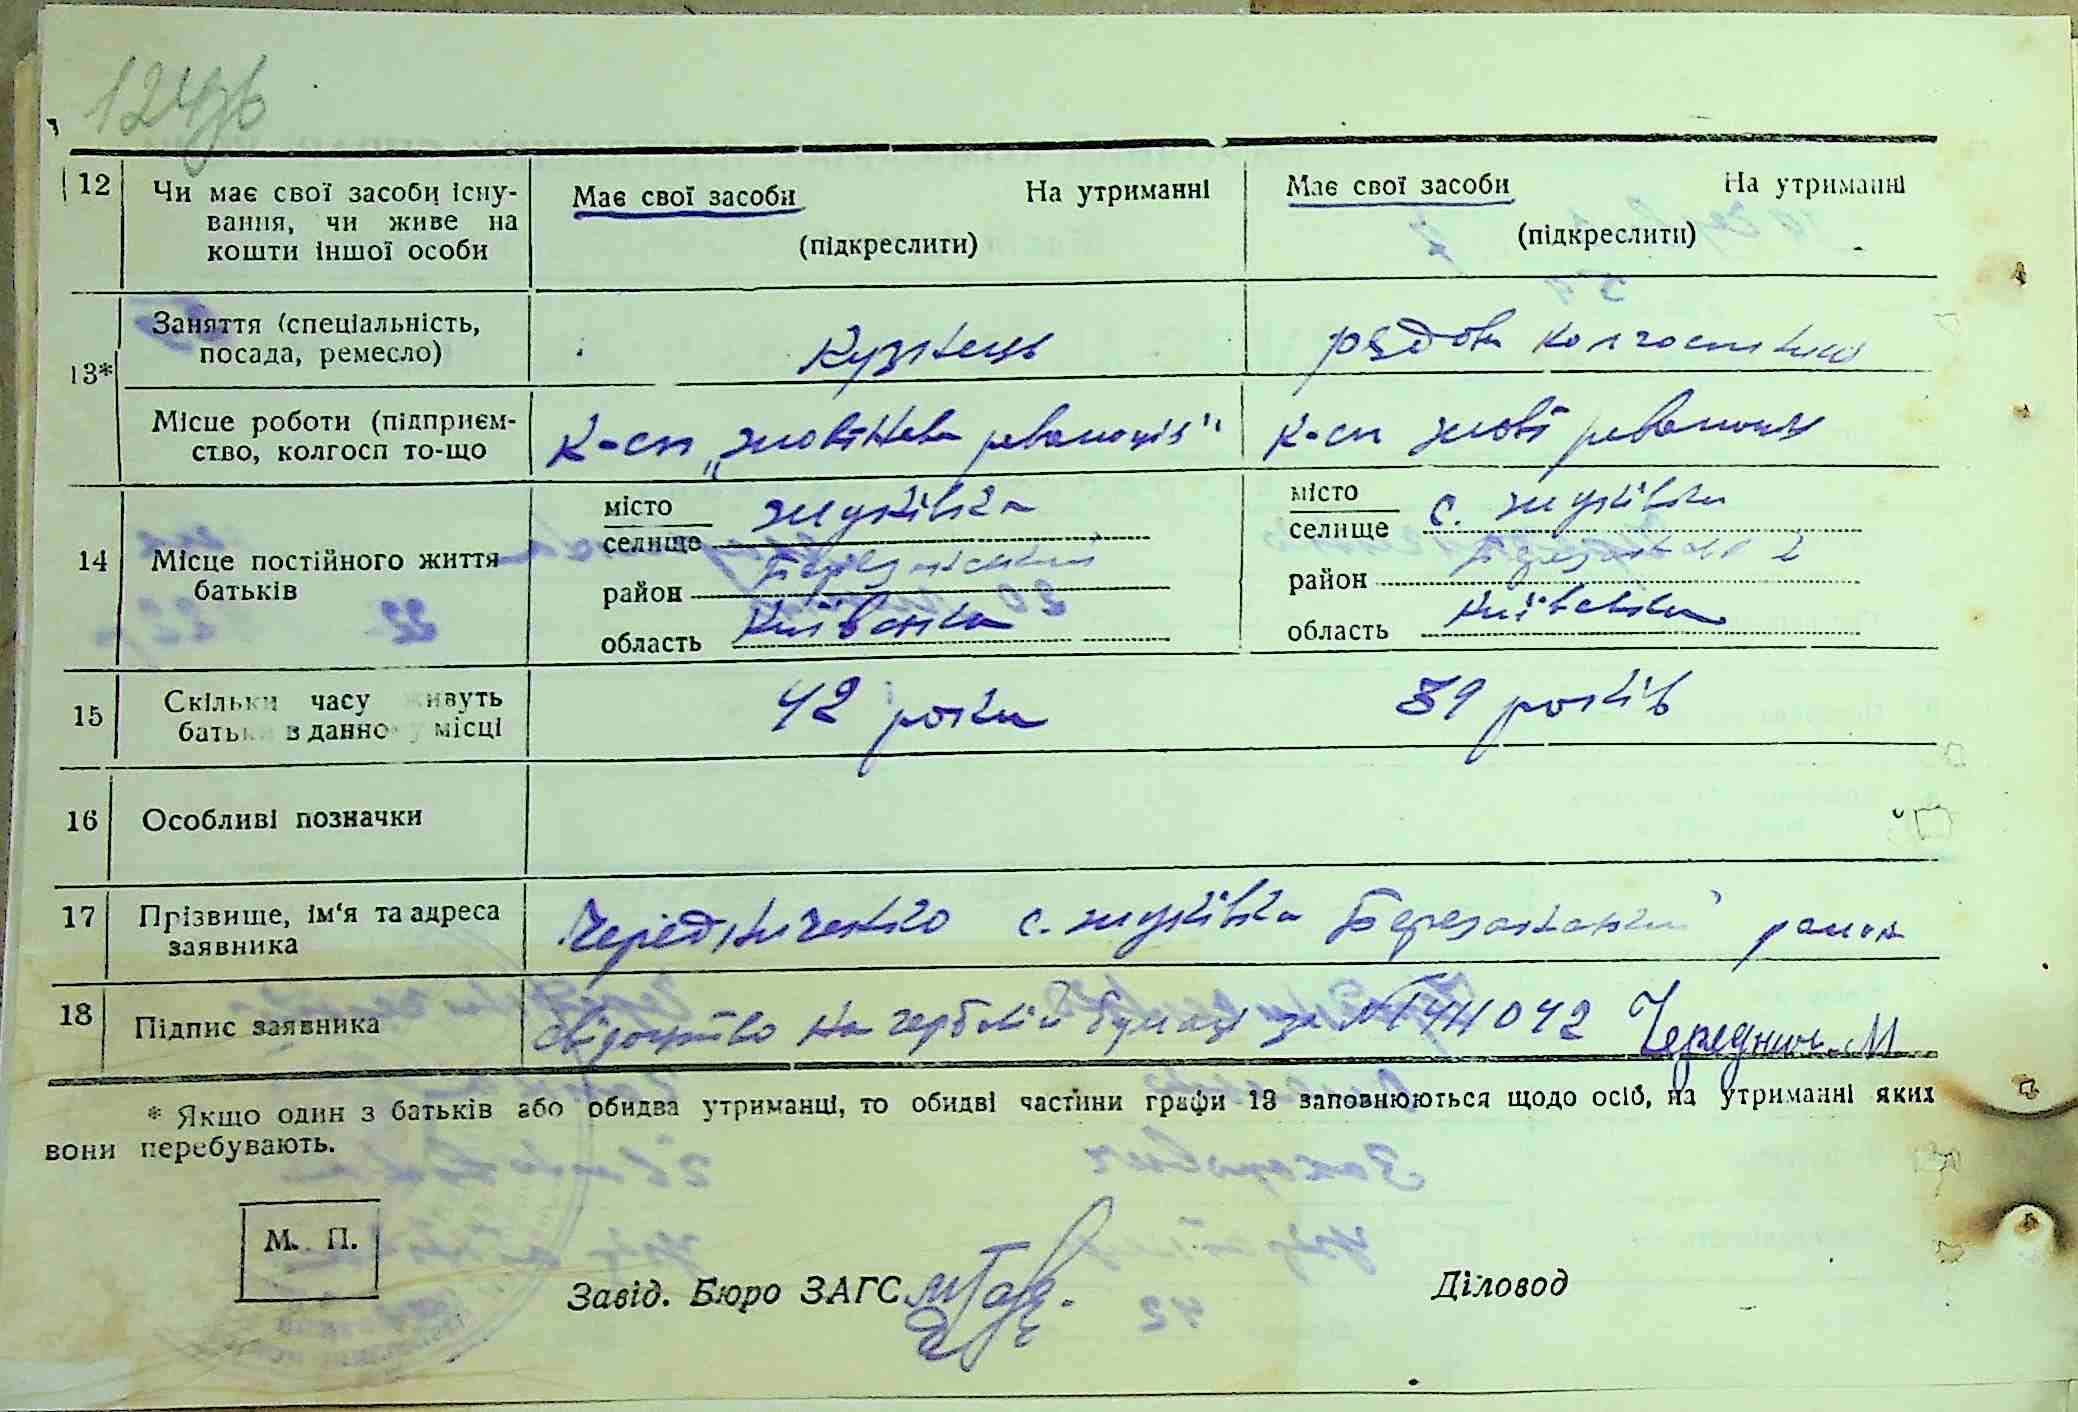 124зв
12 Чи має свої засоби існу-
вання, чи живе на
кошти іншої особи
Має свої засоби На утриманні
(підкреслити)
Має свої засоби На утриманні
(підкреслити)
13*
Заняття (спеціальність,
посада, ремесло)
Кузнець
рядова колгоспниця
Місце роботи (підприєм-
ство, колгосп то-що
К-сп „Жовтнева революція"
К-сп Жовт революція
14 Місце постійного життя
батьків
місто
селище Жуківка
район Березанський
область Київська
місто
селище с. Жуківка
район
область Київська
15 Скільки часу живуть
батьки в данному місці
42 роки
39 років
16 Особливі позначки
17 Прізвище, ім'я та адреса
заявника
Чередниченко с. Жуківка Березанський район
18 Підпис заявника
свідоцтво на гербовій бумазі за № 044042 Чередниче М
* Якщо один з батьків або обидва утриманці, то обидві частини графи 13 заповнюються щодо осіб, на утриманні яких
вони перебувають.
М. П.
Завід. Бюро ЗАГС
Діловод